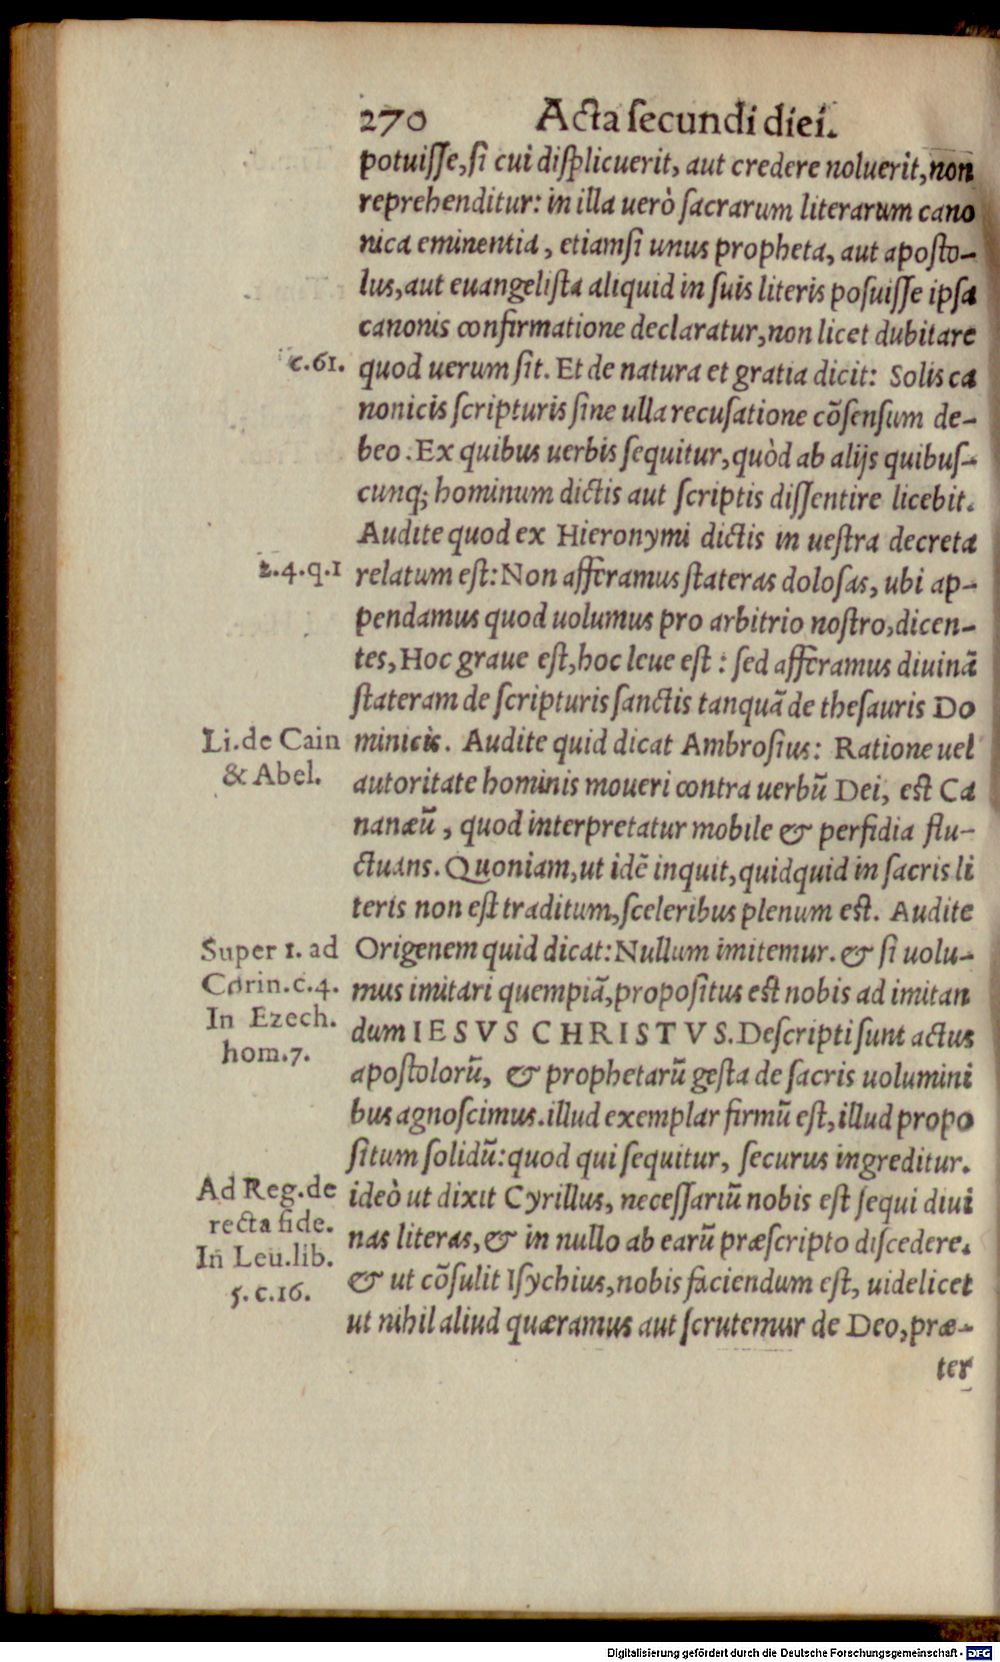 270 Acta ſecundi diei.
potuiſſe, ſi cui diſplicuerit, aut credere noluerit, non
reprehenditur: in illa uerò ſacrarum literarum cano
nica eminentia, etiamſi unus propheta, aut apoſto-
lus, aut euangeliſta aliquid in ſuis literis poſuiſſe ipſa
canonis confirmatione declaratur, non licet dubitare
c.61. quod uerum ſit. Et de natura et gratia dicit: Solis ca
nonicis ſcripturis ſine ulla recuſatione cõſenſum de-
beo. Ex quibus uerbis ſequitur, quòd ab alijs quibuſ-
cunq; hominum dictis aut ſcriptis diſſentire licebit.
Audite quod ex Hieronymi dictis in ueſtra decreta
2.4.q.1 relatum eſt: Non afferamus ſtateras doloſas, ubi ap-
pendamus quod uolumus pro arbitrio noſtro, dicen-
tes, Hoc graue eſt, hoc leue eſt: ſed afferamus diuinã
ſtateram de ſcripturis ſanctis tanquã de theſauris Do
Li. de Cain minicis. Audite quid dicat Ambroſius: Ratione uel
& Abel. autoritate hominis moueri contra uerbũ Dei, eſt Ca
nanæũ, quod interpretatur mobile & perfidia flu-
ctuans. Quoniam, ut idẽ inquit, quidquid in ſacris li
teris non eſt traditum, ſceleribus plenum eſt. Audite
Super 1. ad Origenem quid dicat: Nullum imitemur. & ſi uolu-
Corin.c.4. mus imitari quempiã, propoſitus eſt nobis ad imitan
In Ezech. dum IESVS CHRISTVS. Deſcripti ſunt actus
hom.7. apoſtolorũ, & prophetarũ geſta de ſacris uolumini
bus agnoſcimus. illud exemplar firmũ eſt, illud propo
ſitum ſolidũ: quod qui ſequitur, ſecurus ingreditur.
Ad Reg. de ideò ut dixit Cyrillus, neceſſariũ nobis eſt ſequi diui
recta fide. nas literas, & in nullo ab earũ præſcripto diſcedere.
In Leu. lib. & ut cõſulit Iſychius, nobis faciendum eſt, uidelicet
5.c.16. ut nihil aliud quæramus aut ſcrutemur de Deo, præ-
ter
Digitalisierung gefördert durch die Deutsche Forschungsgemeinschaft - DFG